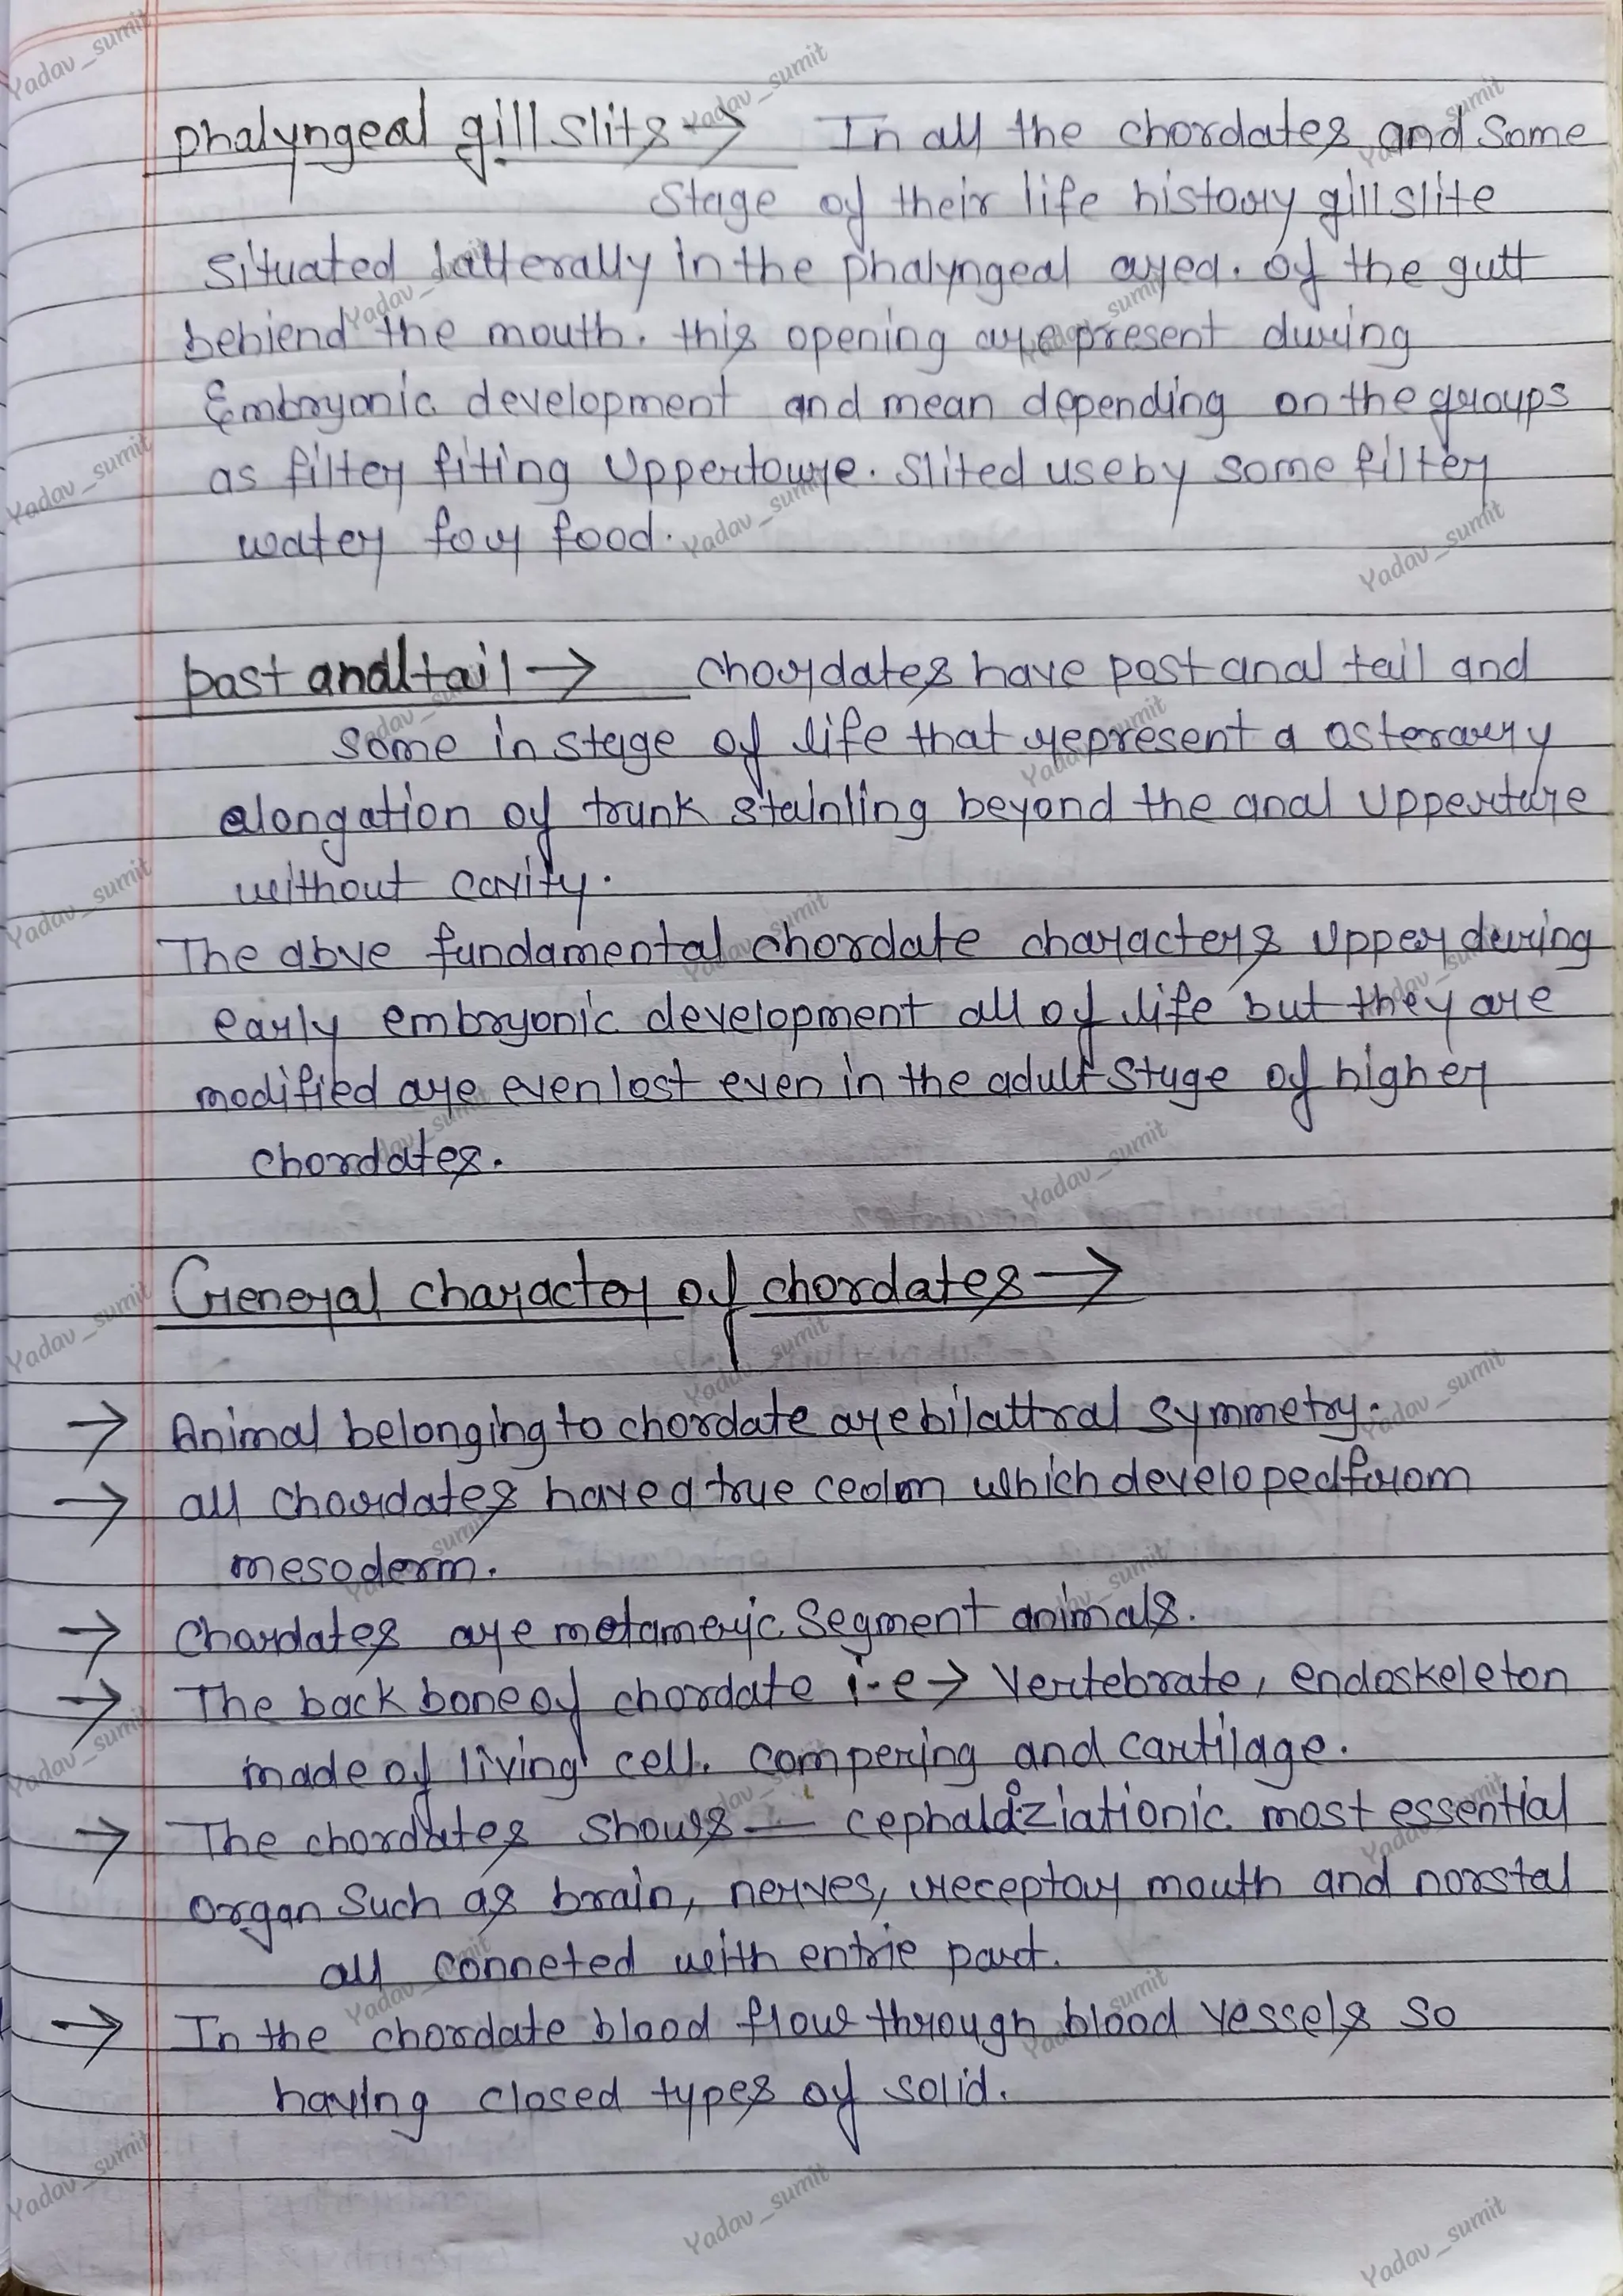 phalyngeal gill slits → In all the chordates and some
stage of their life history gill slite
situated latterally in the phalyngeal ayea. of the gutt
behiend the mouth. this opening are present during
Embryonic development and mean depending on the groups
as filter fiting Uppertoure. Slited use by some filter
water for food.
post anal tail → chordates have post anal tail and
some in stage of life that represent a
elongation of trunk beyond the anal Upperture
without cavity.
The abve fundamental chordate characters Upper during
early embryonic development all of life but they are
modified are even lost even in the adult stage of higher
chordates.
General character of chordates →
→ Animal belonging to chordate are bilattral symmetry.
→ all chordates have a true ceolom which developed from
mesoderm.
→ Chordates are metameric Segment animals.
→ The back bone of chordate i-e → Vertebrate, endoskeleton
made of living cell. compering and cartilage.
→ The chordates shows — most essential
organ Such as brain, nerves, receptor mouth and norstal
all conneted with entrie part.
→ In the chordate blood flow through blood vessels so
having closed types of solid.
Yadav_sumit